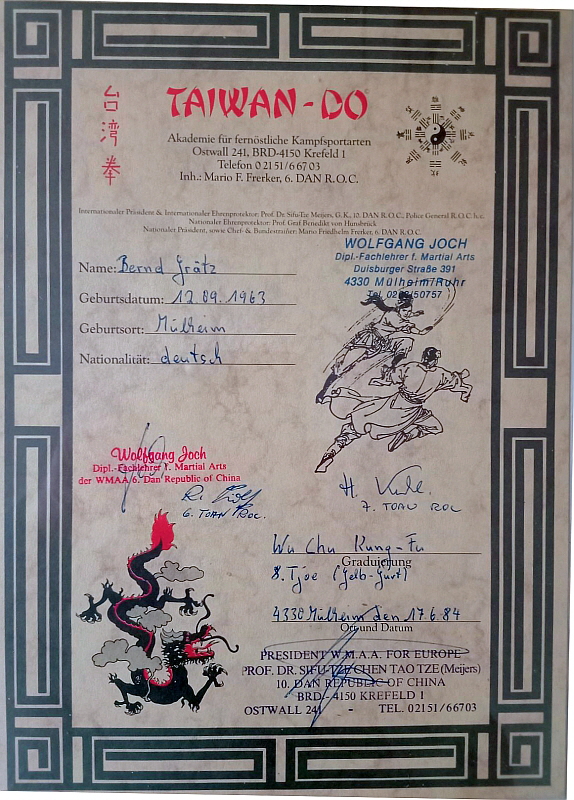 台
湾
拳
TAIWAN-DO
Akademie für fernöstliche Kampfsportarten
Ostwall 241, BRD-4150 Krefeld 1
Telefon 0 21 51/6 67 03
Inh.: Mario F. Frerker, 6. DAN R.O.C.
Internationaler Präsident & Internationaler Ehrenprotektor: Prof. Dr. Sifu-Tze Meijers, G.K., 10. DAN R.O.C., Police General R.O.C. h.c.
Nationaler Ehrenprotektor: Prof. Graf Benedikt von Hunsbrück
Nationaler Präsident, sowie Chef- & Bundestrainer: Mario Friedhelm Frerker, 6. DAN R.O.C.
WOLFGANG JOCH
Dipl.-Fachlehrer f. Martial Arts
Duisburger Straße 391
4330 Mülheim/Ruhr
Name: Bernd Grätz
Geburtsdatum: 12.09.1963
Geburtsort: Mülheim
Nationalität: deutsch
Wolfgang Joch
Dipl.-Fachlehrer f. Martial Arts
der WMAA 6. Dan Republic of China
6. TOAN ROC.
7. TOAU ROC
Wu Chu Kung-Fu
Graduierung
8. Tjoe (Gelb-Gurt)
4330 Mülheim den 17.6.84
Ort und Datum
PRESIDENT W.M.A.A. FOR EUROPE
PROF. DR. SIFU-TZE CHEN TAO TZE (Meijers)
10. DAN REPUBLIC OF CHINA
BRD - 4150 KREFELD 1
OSTWALL 241 - TEL. 02151/66703